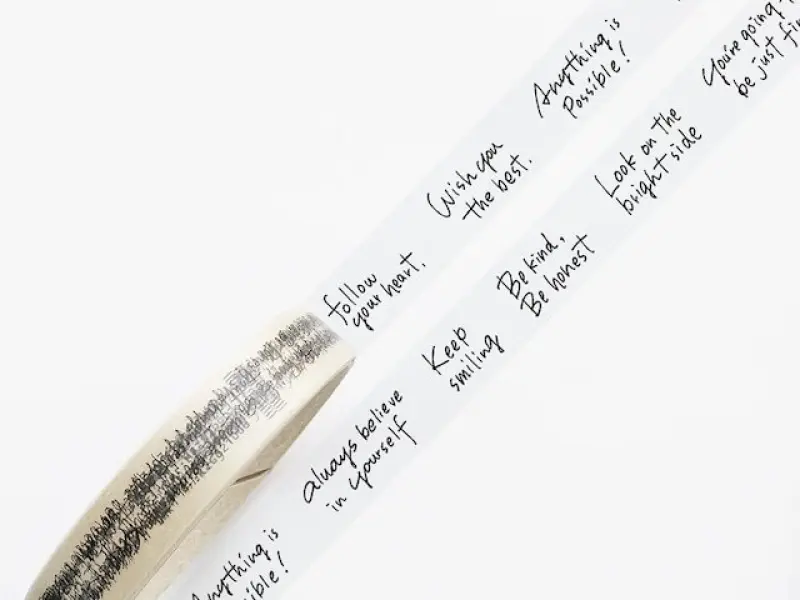 Anything is
Possible!
Wish you
the best.
follow
your heart.
You're going
be just
Look on the
bright side
Be kind,
Be honest
Keep
smiling
always believe
in yourself
Anything is